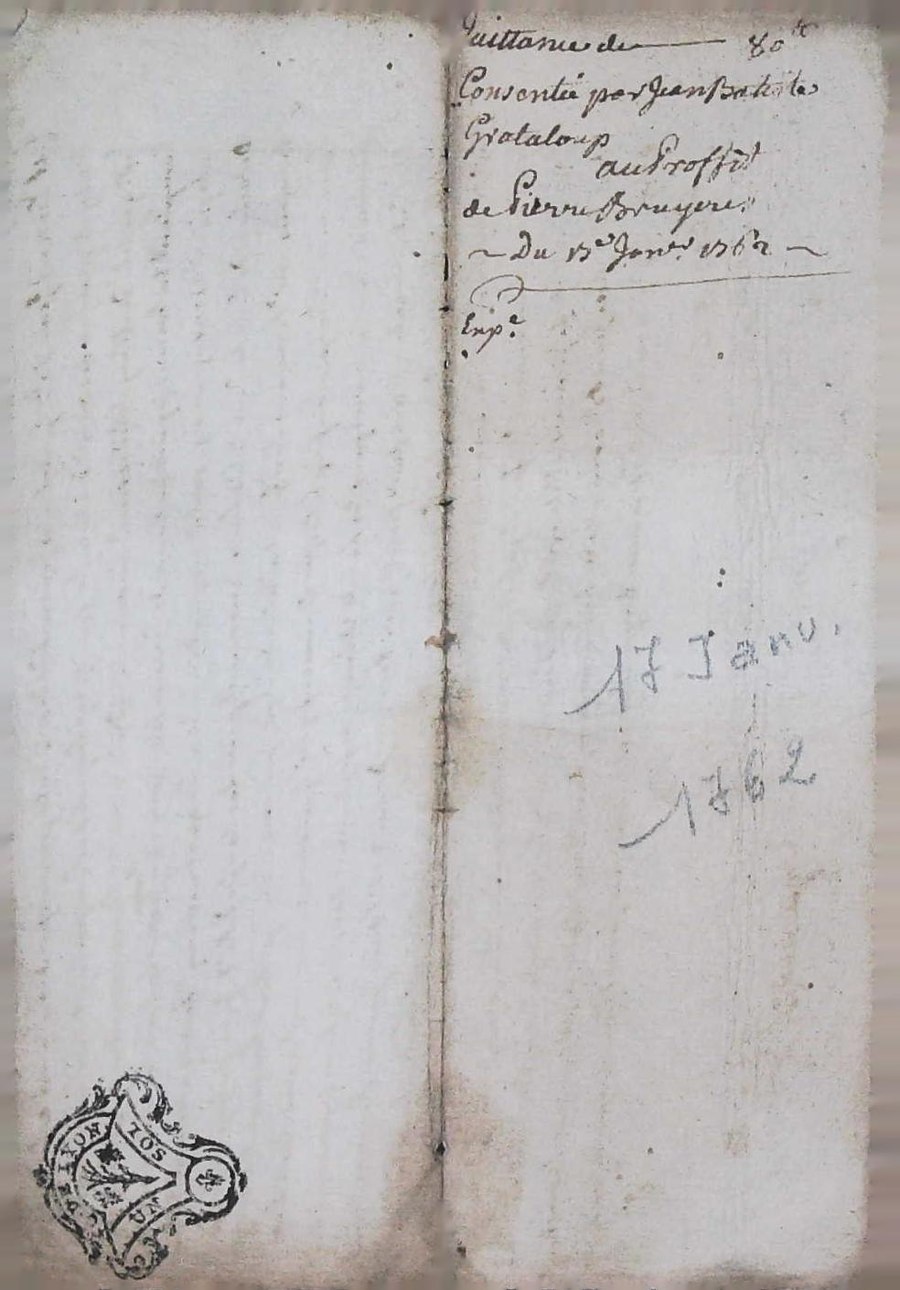 Quittance de 80ᵗᵗ
Consentie par Jean Batiste
Grataloup
au Proffit
de Pierre Bruyere
~ Du 17e Janer 1762 ~
Exp.e
17 Janv.
1762
DE LYON
SOL